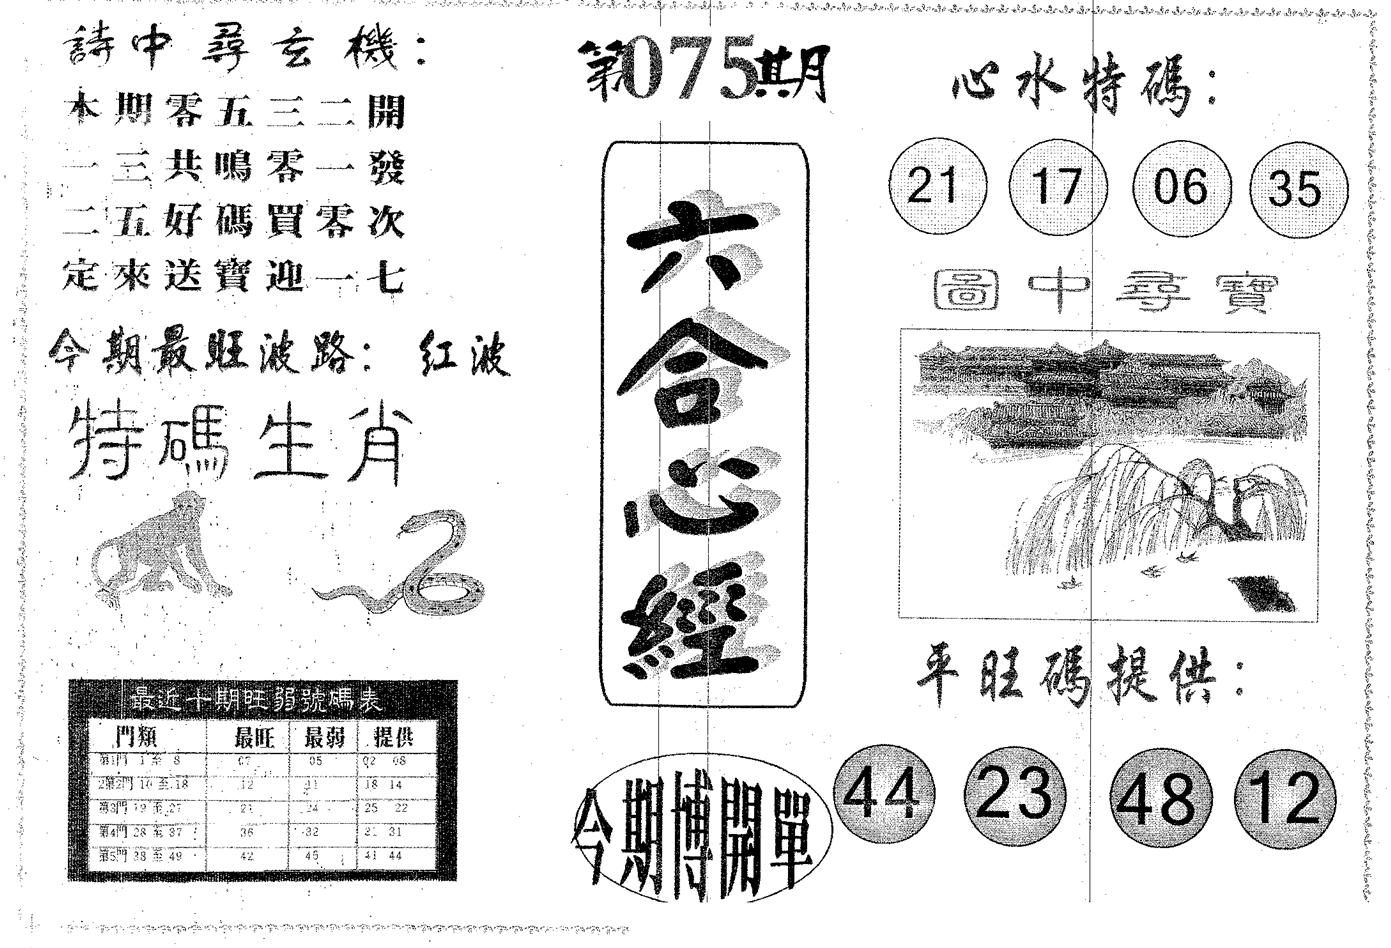 詩中尋玄機：
本期零五三二開
一三共鳴零一發
二五好碼買零次
定來送寶迎一七
今期最旺波路： 红波
特碼生肖
最近十期旺弱號碼表
門類 最旺 最弱 提供
第1門 1至 8 07 05 02 08
2第2門 10 至.18 12 11 18 14
第3門 19 至 27 21 24 25 22
第4門 28 至 37 36 32 31
第5門 38 至 49 42 45 41 44
第075期
六合心經
今期博開單
心水特碼：
21 17 06 35
圖中尋寶
平旺碼提供：
44 23 48 12